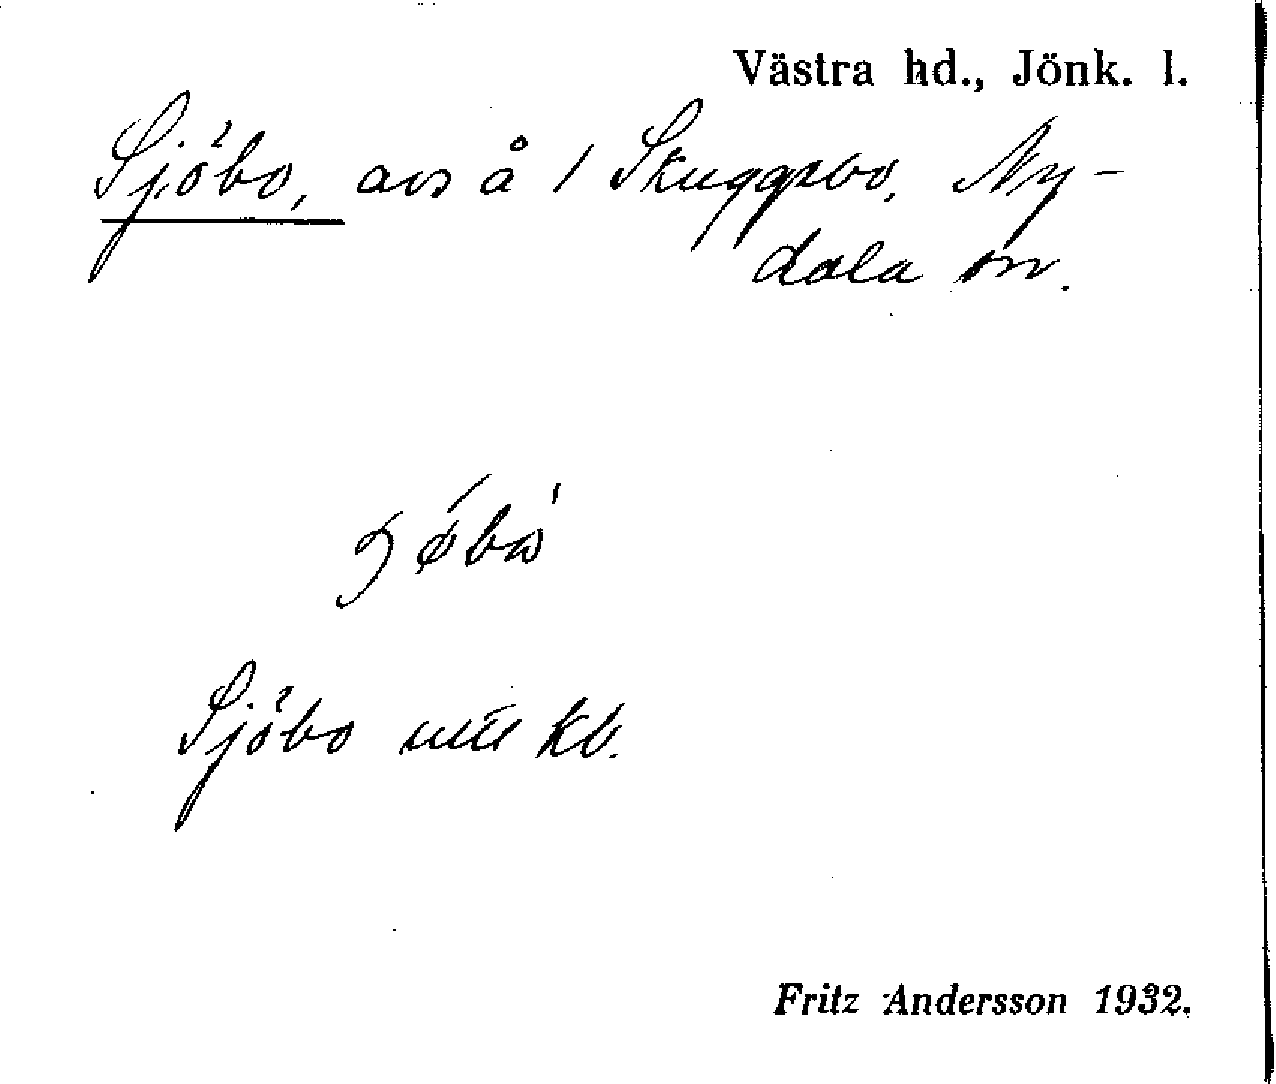 Västra hd., Jönk. l.
Sjöbo, avs å 1 Skuggebo, Ny-
dala sn.
Sjöbo kb.
Fritz Andersson 1932.